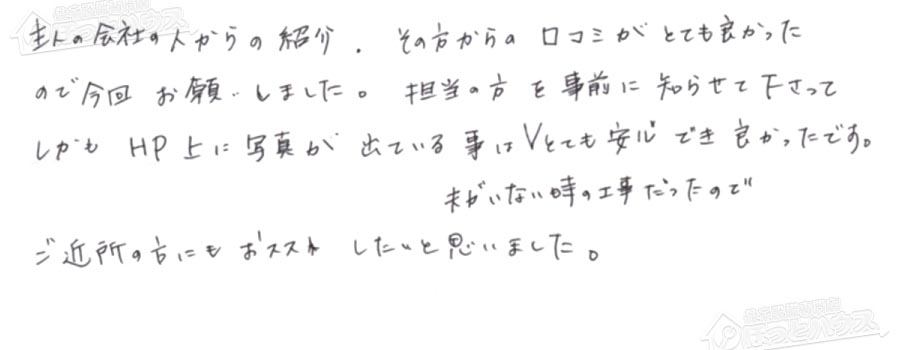 主人の会社の人からの紹介．その方からの口コミがとても良かった
ので今回お願いしました。担当の方を事前に知らせて下さって
しかもHP上に写真が出ている事はVとても安心でき良かったです。
がいない時の工事だったので
ご近所の方にもおススメしたいと思いました。
ほっとハウス